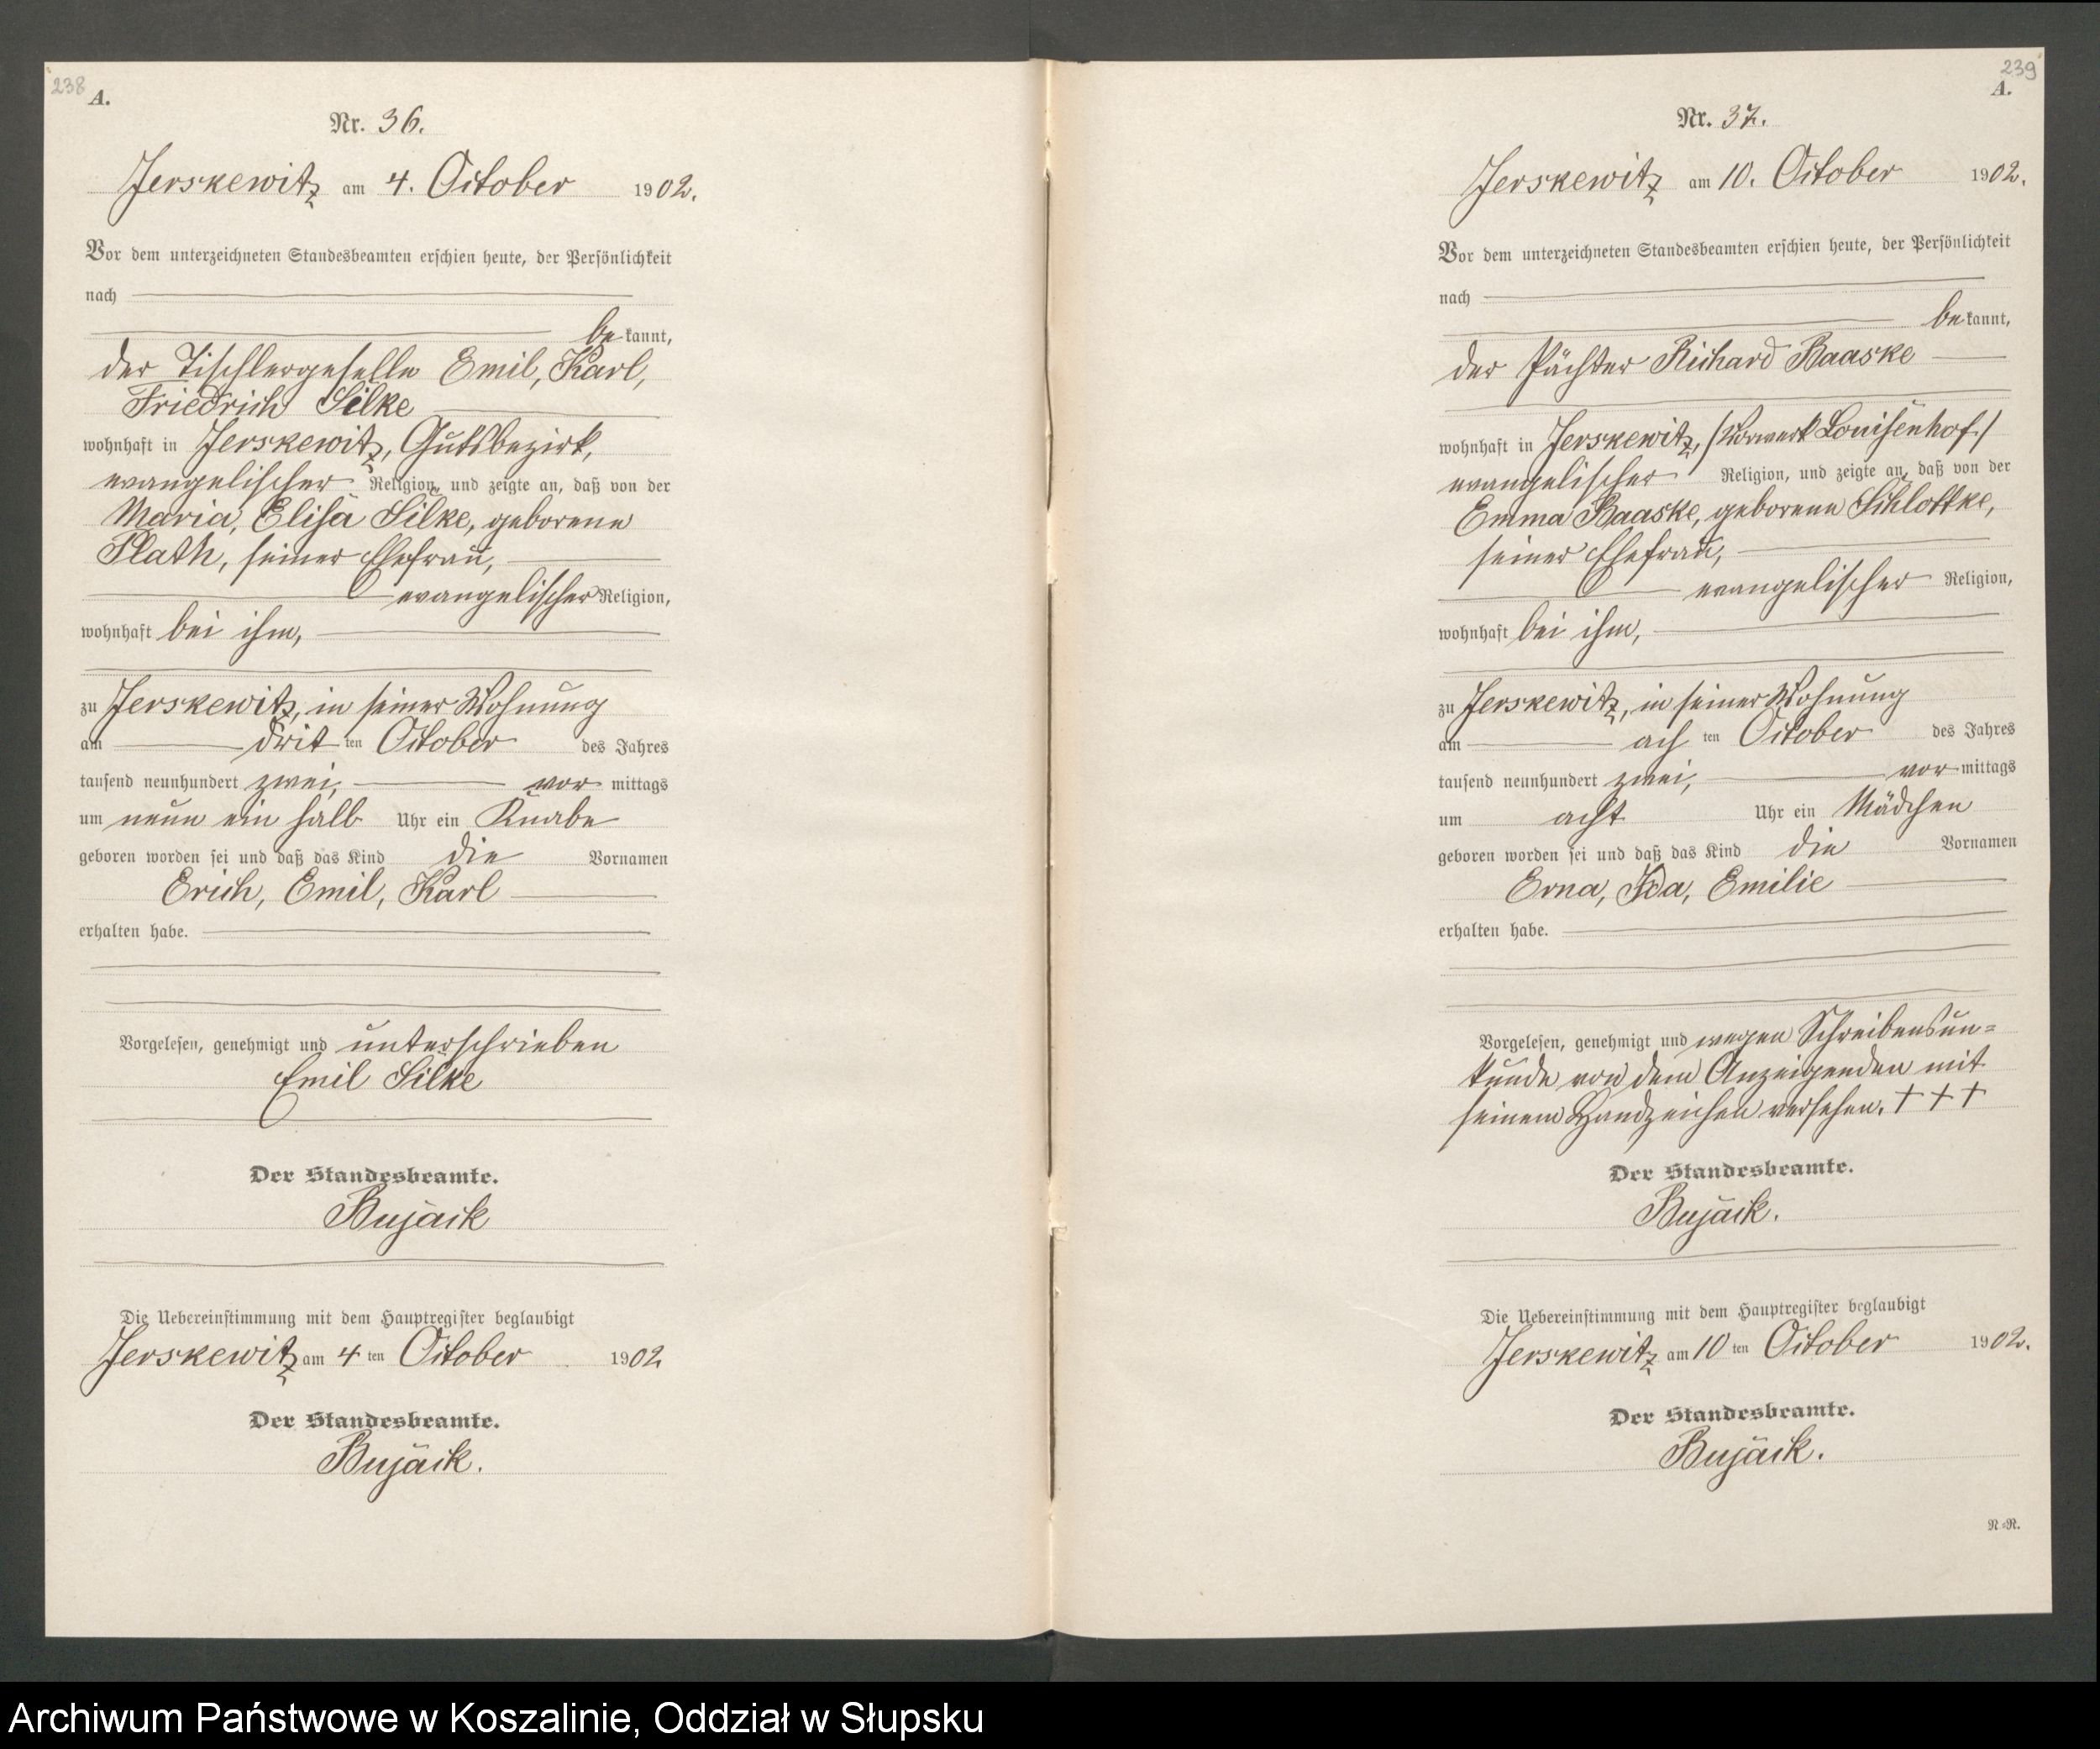 238
A.
Nr. 36.
Jerskewitz am 4. October 1902.
Vor dem unterzeichneten Standesbeamten erschien heute, der Persönlichkeit
nach
be kannt,
der Tischlergeselle Emil, Karl,
Friedrich Silke
wohnhaft in Jerskewitz, Gutsbezirk,
evangelischer Religion, und zeigte an, daß von der
Maria, Elisa Silke, geborene
Plath, seiner Ehefrau,
evangelischer Religion,
wohnhaft bei ihm,
zu Jerskewitz, in seiner Wohnung
am drit ten October des Jahres
tausend neunhundert zwei, vor mittags
um neun ein halb Uhr ein Knabe
geboren worden sei und daß das Kind die Vornamen
Erich, Emil, Karl
erhalten habe.
Vorgelesen, genehmigt und unterschrieben
Emil Silke
Der Standesbeamte.
Bujack
Die Uebereinstimmung mit dem Hauptregister beglaubigt
Jerskewitz am 4 ten October 1902
Der Standesbeamte.
Bujack.
239
A.
Nr. 37.
Jerskewitz am 10. October 1902.
Vor dem unterzeichneten Standesbeamten erschien heute, der Persönlichkeit
nach
be kannt,
der Pächter Richard Baaske
wohnhaft in Jerskewitz, /Vorwerk Louisenhof/
evangelischer Religion, und zeigte an, daß von der
Emma Baaske, geborene Schlottke,
seiner Ehefrau,
evangelischer Religion,
wohnhaft bei ihm,
zu Jerskewitz, in seiner Wohnung
am ach ten October des Jahres
tausend neunhundert zwei, vor mittags
um acht Uhr ein Mädchen
geboren worden sei und daß das Kind die Vornamen
Erna, Ida, Emilie
erhalten habe.
Vorgelesen, genehmigt und wegen Schreibensun=
kunde von dem Anzeigenden mit
seinem Handzeichen versehen. + + +
Der Standesbeamte.
Bujack.
Die Uebereinstimmung mit dem Hauptregister beglaubigt
Jerskewitz am 10 ten October 1902.
Der Standesbeamte.
Bujack.
R=R.
Archiwum Państwowe w Koszalinie, Oddział w Słupsku